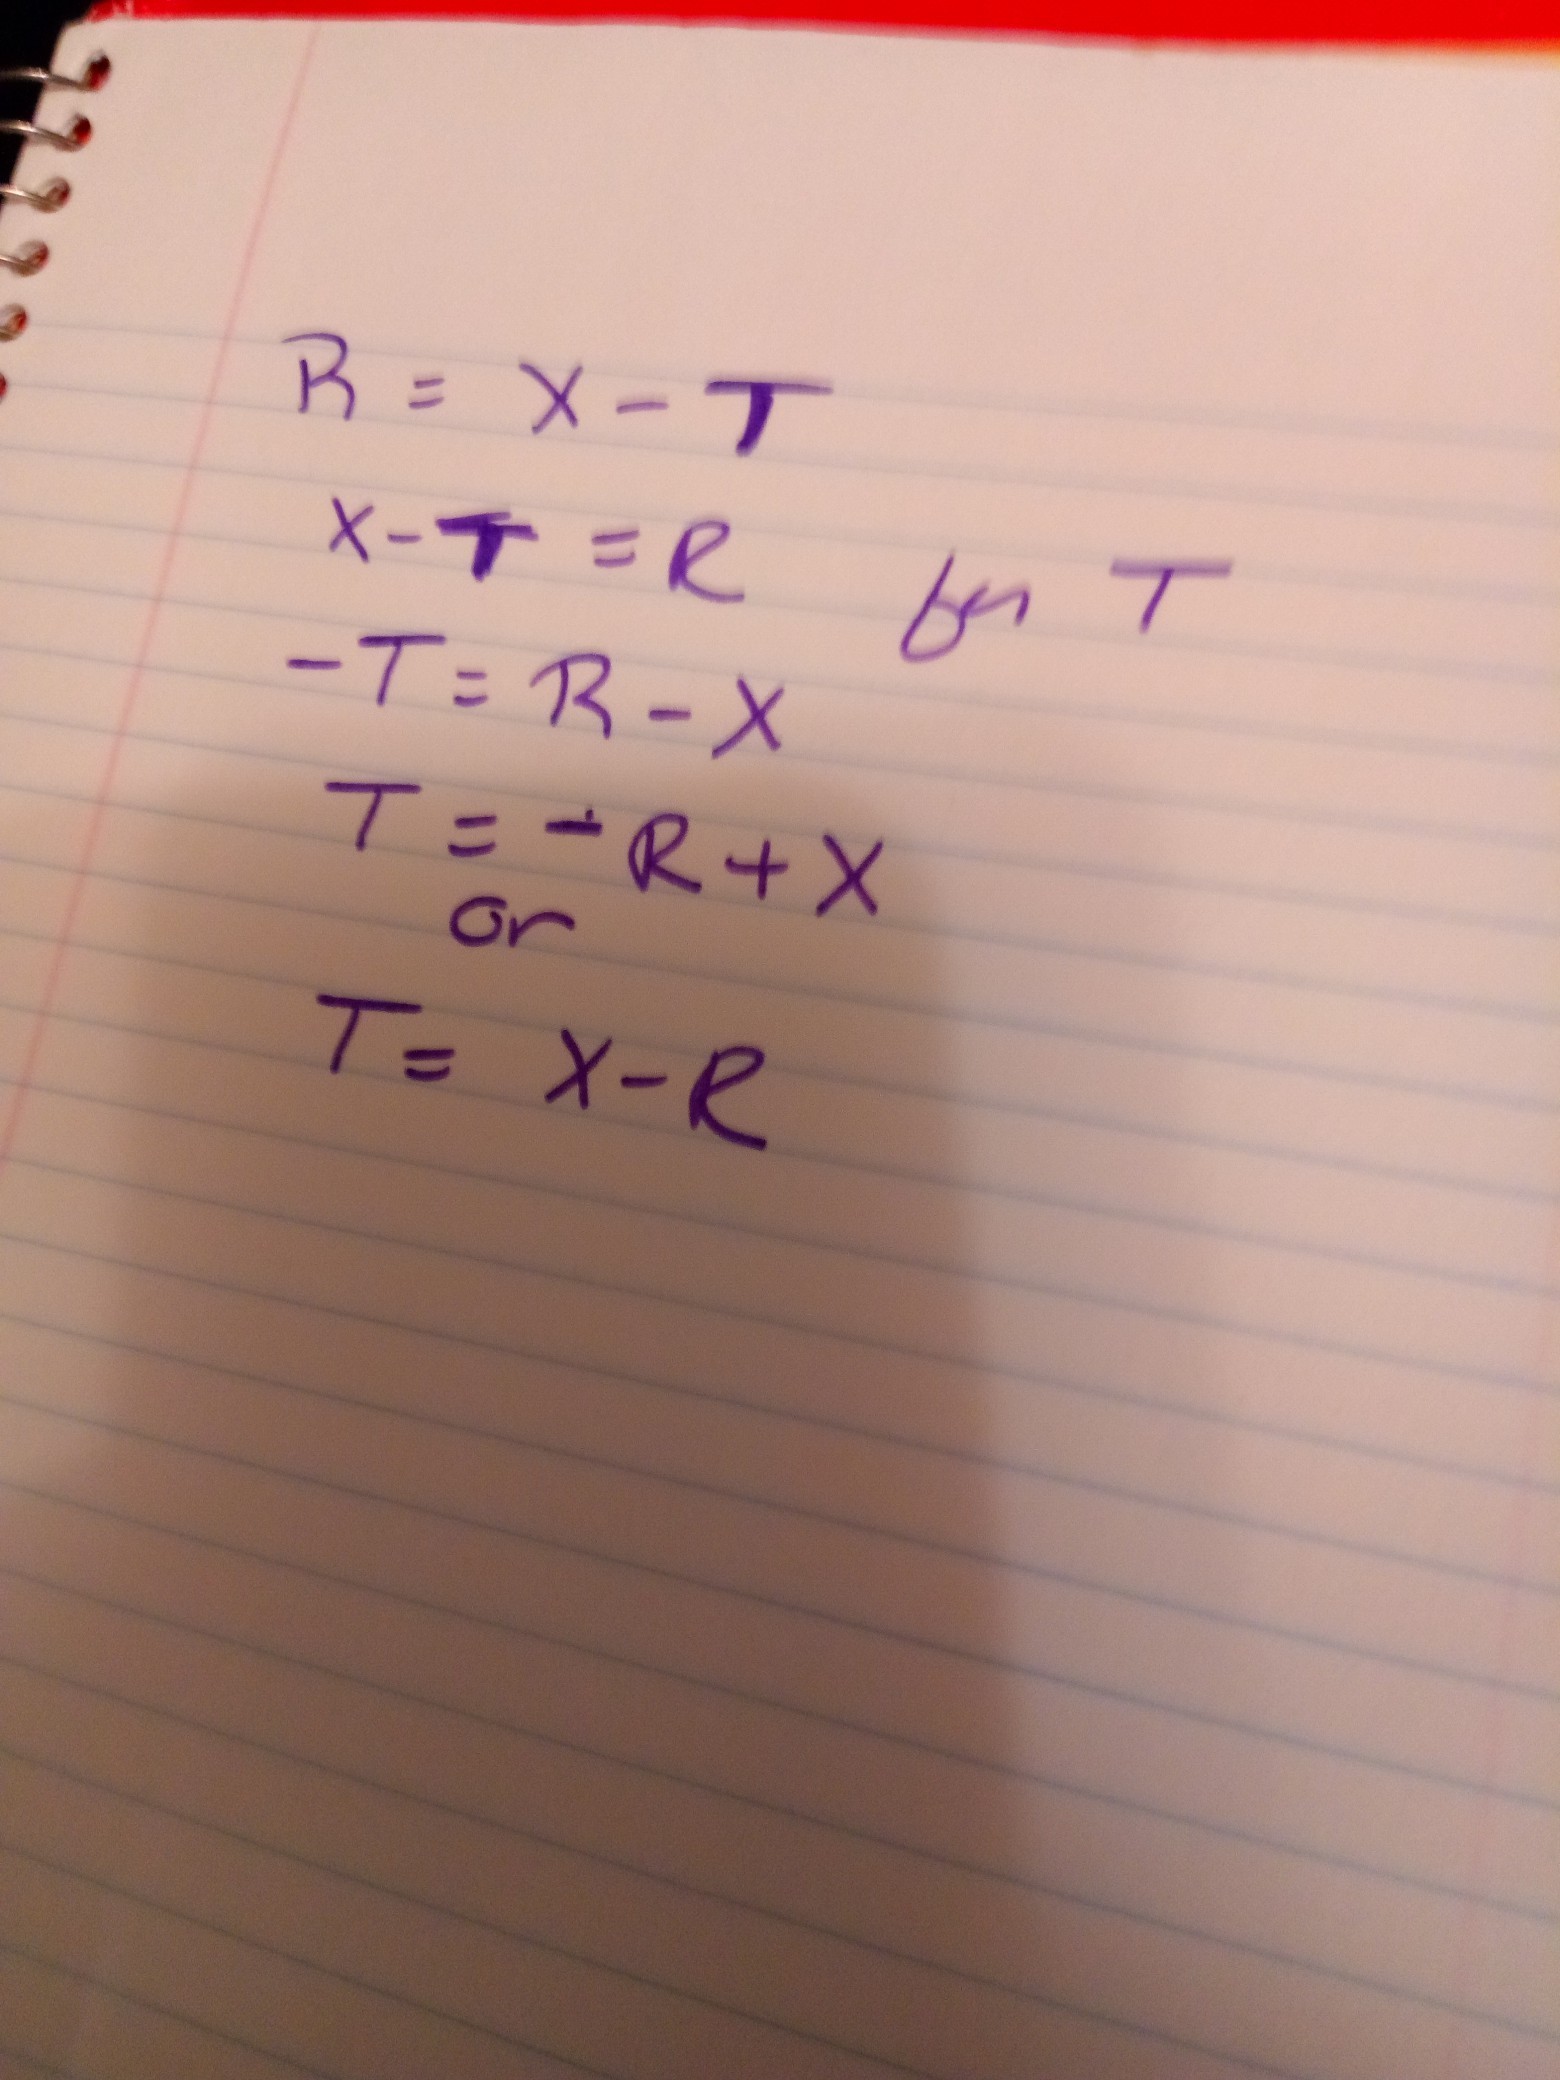 R = X - T
X - T = R for T
-T = R - X
T = -R + X
or
T = X - R